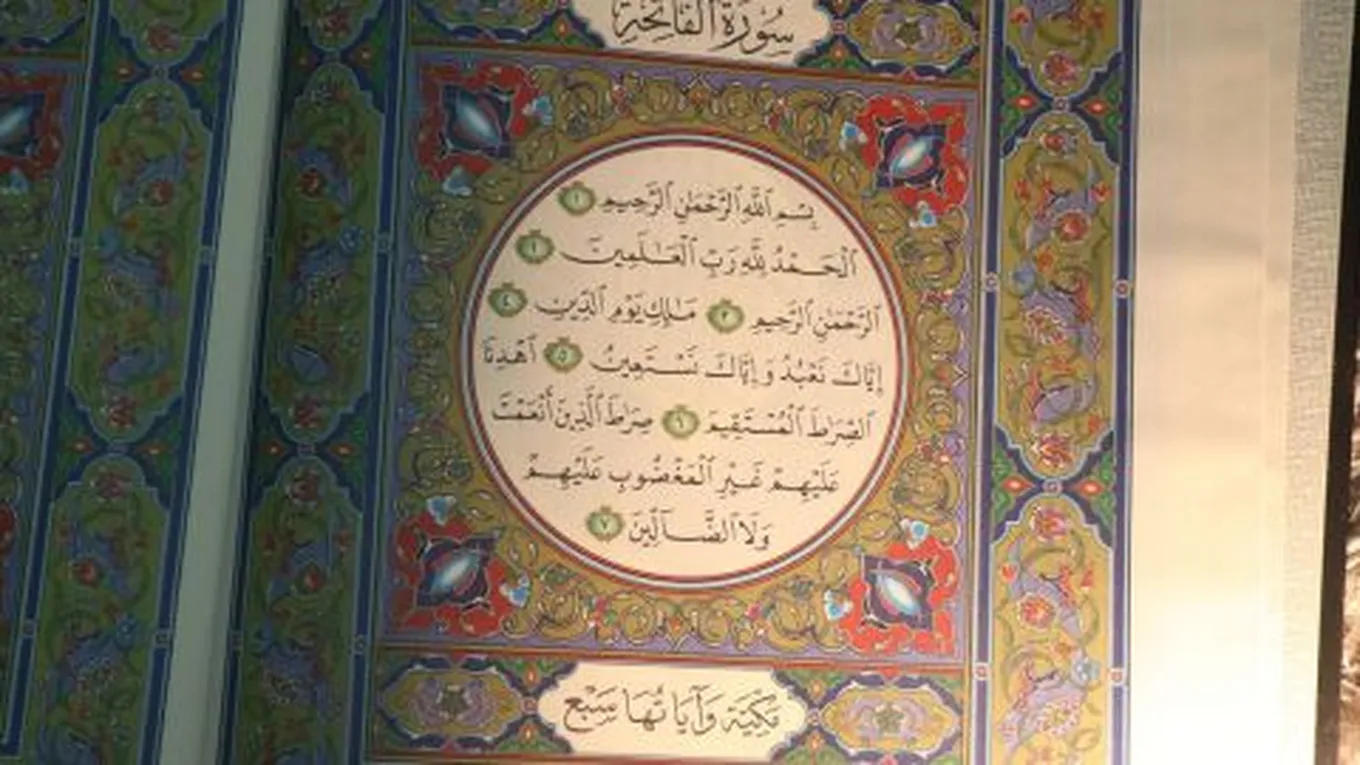 سُورَةُ الفَاتِحَةِ
بِسْمِ ٱللَّهِ ٱلرَّحْمَٰنِ ٱلرَّحِيمِ ١
ٱلْحَمْدُ لِلَّهِ رَبِّ ٱلْعَٰلَمِينَ ٢
ٱلرَّحْمَٰنِ ٱلرَّحِيمِ ٣ مَٰلِكِ يَوْمِ ٱلدِّينِ ٤
إِيَّاكَ نَعْبُدُ وَإِيَّاكَ نَسْتَعِينُ ٥ ٱهْدِنَا
ٱلصِّرَٰطَ ٱلْمُسْتَقِيمَ ٦ صِرَٰطَ ٱلَّذِينَ أَنْعَمْتَ
عَلَيْهِمْ غَيْرِ ٱلْمَغْضُوبِ عَلَيْهِمْ
وَلَا ٱلضَّآلِّينَ ٧
مَكِّيَّة وَآيَاتُهَا سَبْع